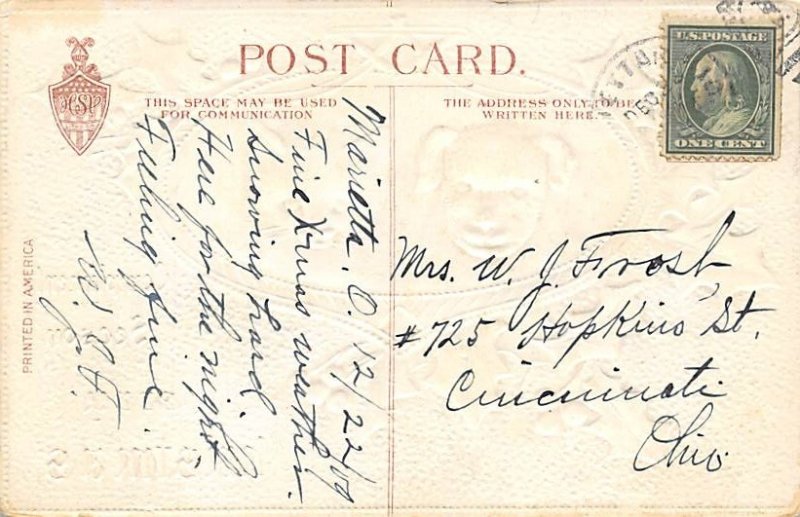 POST CARD.
THIS SPACE MAY BE USED
FOR COMMUNICATION
THE ADDRESS ONLY TO BE
WRITTEN HERE.
U.S. POSTAGE
ONE CENT
DEC
HSV
PRINTED IN AMERICA
Marietta, O. 12/22/09
Fine Xmas weather.
Snowing hard.
Here for the night
Feeling fine.
W.J.F.
Mrs. W. J. Frost,
#725 Hopkins St.
Cincinnati
Ohio